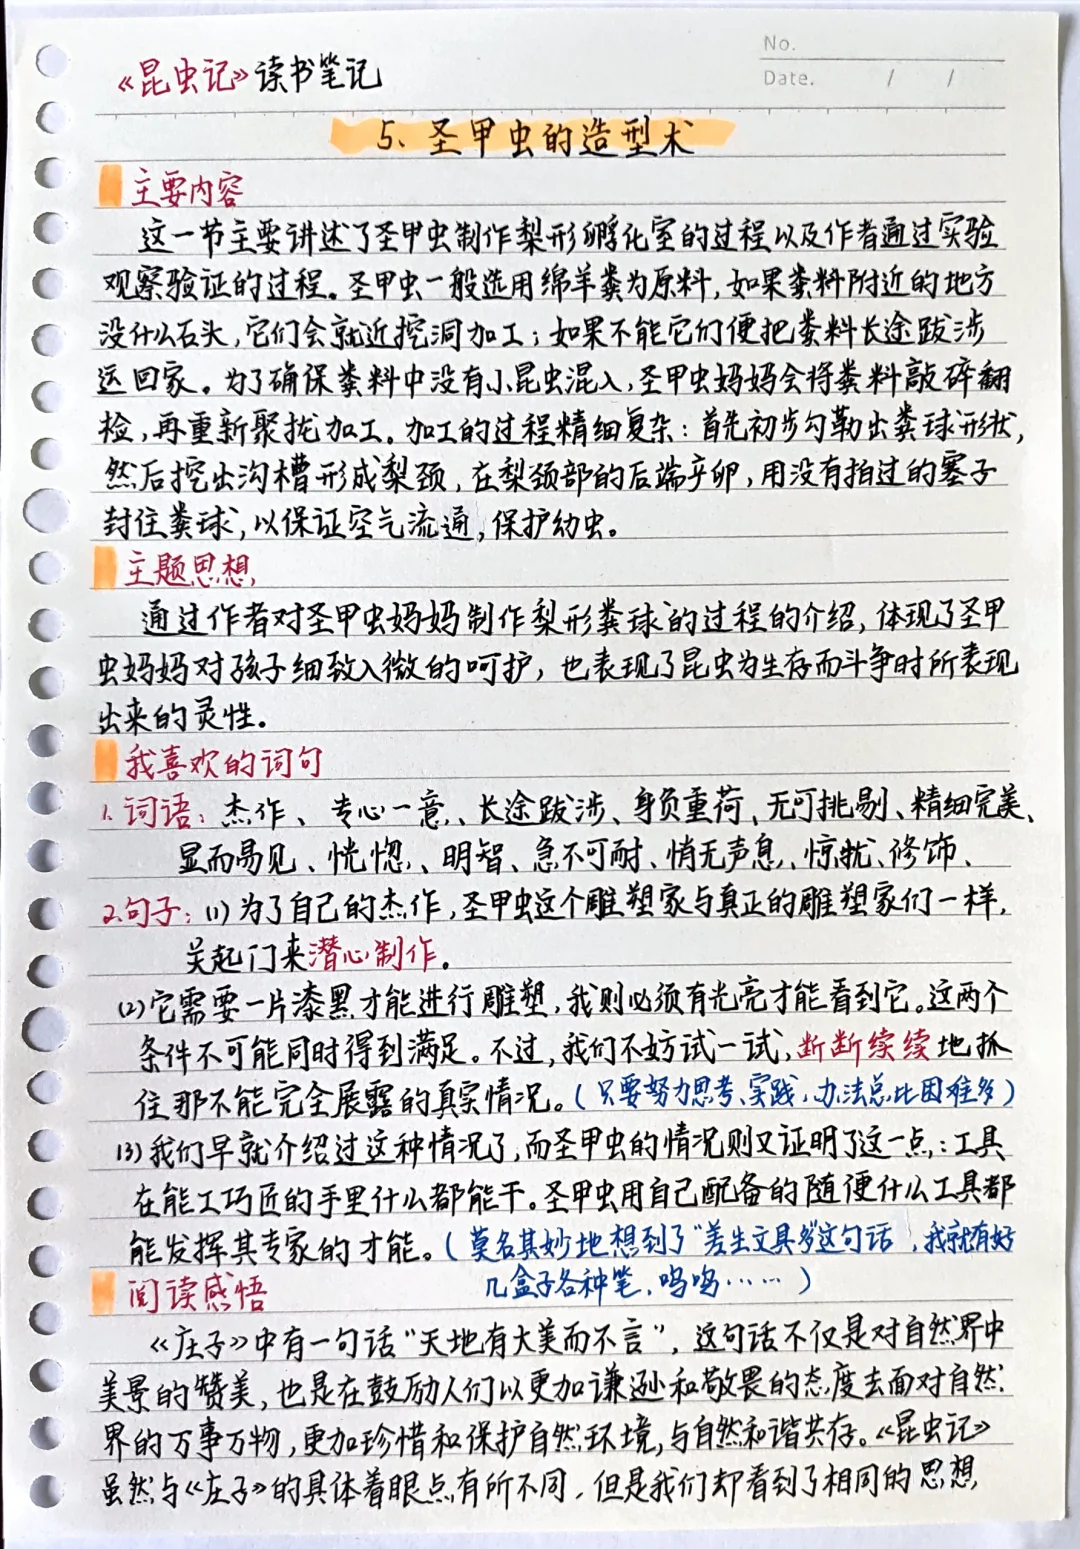 No.
《昆虫记》读书笔记
Date. / /
5、圣甲虫的造型术
主要内容
这一节主要讲述了圣甲虫制作梨形孵化室的过程以及作者通过实验
观察验证的过程。圣甲虫一般选用绵羊粪为原料,如果粪料附近的地方
没什么石头,它们会就近挖洞加工;如果不能它们便把粪料长途跋涉
运回家。为了确保粪料中没有小昆虫混入,圣甲虫妈妈会将粪料敲碎翻
检,再重新聚拢加工。加工的过程精细复杂:首先初步勾勒出粪球形状,
然后挖出沟槽形成梨颈,在梨颈部的后端产卵,用没有拍过的塞子
封住粪球,以保证空气流通,保护幼虫。
主题思想
通过作者对圣甲虫妈妈制作梨形粪球的过程的介绍,体现了圣甲
虫妈妈对孩子细致入微的呵护,也表现了昆虫为生存而斗争时所表现
出来的灵性。
我喜欢的词句
1.词语:杰作、专心一意、长途跋涉、身负重荷、无可挑剔、精细完美、
显而易见、恍惚、明智、急不可耐、悄无声息、惊扰、修饰、
2.句子:(1)为了自己的杰作,圣甲虫这个雕塑家与真正的雕塑家们一样,
关起门来潜心制作。
(2)它需要一片漆黑才能进行雕塑,我则必须有光亮才能看到它。这两个
条件不可能同时得到满足。不过,我们不妨试一试,断断续续地抓
住那不能完全展露的真实情况。(只要努力思考、实践,办法总比困难多)
(3)我们早就介绍过这种情况了,而圣甲虫的情况则又证明了这一点:工具
在能工巧匠的手里什么都能干。圣甲虫用自己配备的随便什么工具都
能发挥其专家的才能。(莫名其妙地想到了"差生文具多"这句话,我就有好
几盒子各种笔,呜呜……)
阅读感悟
《庄子》中有一句话"天地有大美而不言",这句话不仅是对自然界中
美景的赞美,也是在鼓励人们以更加谦逊和敬畏的态度去面对自然
界的万事万物,更加珍惜和保护自然环境,与自然和谐共存。《昆虫记》
虽然与《庄子》的具体着眼点有所不同,但是我们却看到了相同的思想,